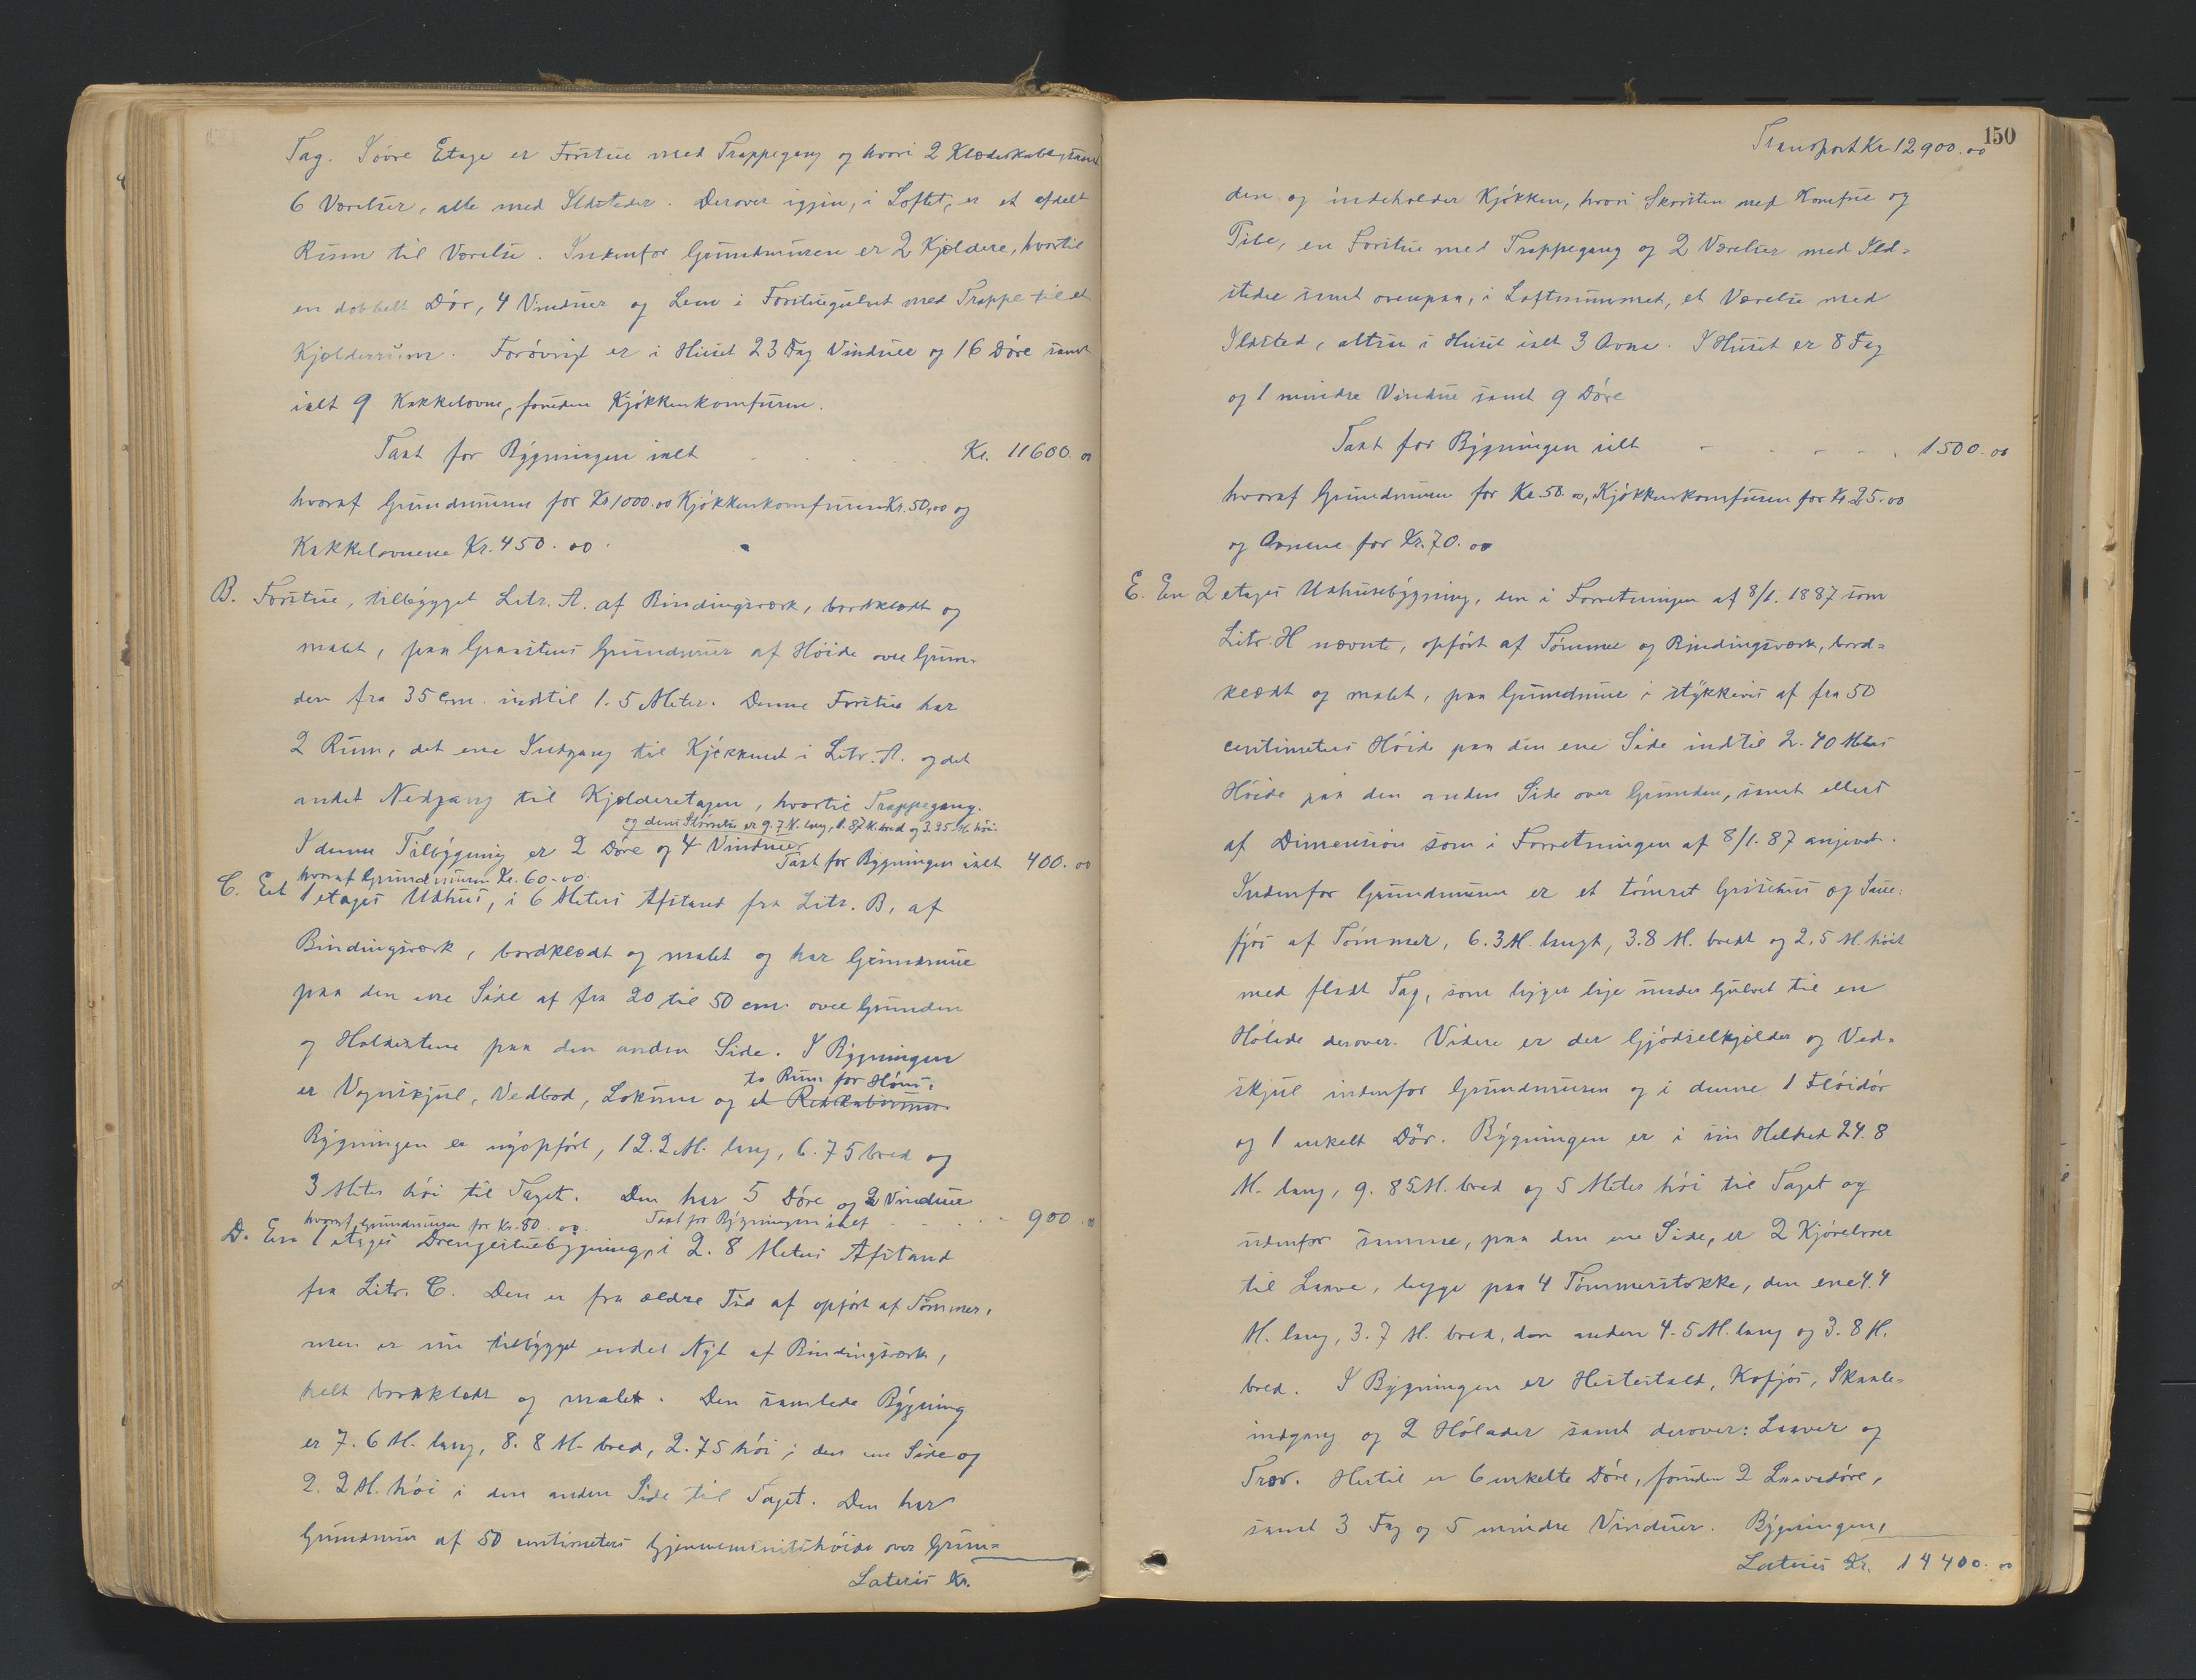 Tag. I øvre Etage er Forstue med Trappegang og hvori 2 Klædeskabe, samt
6 Værelser, alle med Ildsteder. Derover igjen, i Loftet, er et afdelt
Rum til Værelse. Indenfor Grundmuren er 2 Kjeldere, hvortil
en dobbelt Dør, 4 Vinduer og Lem i Forstuegulvet med Trappe til et
Kjelderrum. Forøvrigt er i Huset 23 Fag Vinduer og 16 Døre samt
ialt 9 Kakkelovne, foruden Kjøkkenkomfuren.
Taxt for Bygningen ialt Kr. 11600.00
hvoraf Grundmurene for Kr 1000.00 Kjøkkenkomfuren Kr. 50,00 og
Kakkelovnene Kr. 450.00.
B. Forstue, tilbygget Litr. A. af Bindingsværk, bordklædt og
malet, paa Graastens Grundmur af Høide over Grun-
den fra 35 cm. indtil 1.5 Meter. Denne Forstue har
2 Rum, det ene Indgang til Kjøkkenet i Litr. A. og det
andet Nedgang til Kjelderetagen, hvortil Trappegang.
og dens Størrelse er 9.7 M. lang, 1.87 M. bred og 3.25 M. høi.
I denne Tilbygning er 2 Døre og 4 Vinduer
Taxt for Bygningen ialt 400.00
hvoraf Grundmuren Kr. 60.00.
C. Et 1 etages Udhus, i 6 Meters Afstand fra Litr. B, af
Bindingsværk, bordklædt og malet og har Grundmur
paa den ene Side af fra 20 til 50 cm. over Grunden
og paa den anden Side. I Bygningen
to Rum for Høns.
er Vognskjul, Vedbod, Lokum og et Redskabsrum.
Bygningen er nyopført, 12.2 M. lang, 6.75 bred og
3 Meter høi til Taget. Den har 5 Døre og 2 Vinduer
hvoraf Grundmuren for Kr. 80.00. Taxt for Bygningen ialt 900.00
D. En 1 etages Drengestuebygning, i 2.8 Meters Afstand
fra Litr. C. Den er fra ældre Tid af opført af Tømmer,
men er nu tilbygget endel Nyt af Bindingsværk,
helt bordklædt og malet. Den samlede Bygning
er 7.6 M. lang, 8.8 M. bred, 2.75 høi i den ene Side og
2.2 M. høi i den anden Side til Taget. Den har
Grundmur af 50 centimeters Gjennemsnitshøide over Grun=
Lateris Kr.
150
Transport Kr 12900.00
den og indeholder Kjøkken, hvori Skorsten med Komfur og
Pibe, en Forstue med Trappegang og 2 Værelser med Ild=
steder samt ovenpaa, i Loftrummet, et Værelse med
Ildsted, altsaa i Huset ialt 3 Ovne. I Huset er 8 Fag
og 1 mindre Vindue samt 9 Døre
Taxt for Bygningen ialt 1500.00
hvoraf Grundmuren for Kr. 50.00, Kjøkkenkomfuren for Kr. 25.00
og Ovnene for Kr. 70.00
E. En 2 etages Udhusbygning, den i Forretningen af 8/1. 1887 som
Litr. H nævnte, opført af Tømmer og Bindingsværk, bord=
klædt og malet, paa Grundmur i stykkevis af fra 50
centimeters Høide paa den ene Side indtil 2.40 Meters
Høide paa den anden Side over Grunden, samt ellers
af Dimension som i Forretningen af 8/1. 87 angivet.
Indenfor Grundmuren er et tømret Grisehus og Saue=
fjøs af Tømmer, 6.3 M. langt, 3.8 M. bredt og 2.5 M. høit
med fladt Tag, som ligger lige under Gulvet til en
Hølade derover. Videre er der Gjødselkjelder og Ved=
skjul indenfor Grundmuren og i denne 1 Fløidør
og 1 enkelt Dør. Bygningen er i sin Helhed 24.8
M. lang, 9.85 M. bred og 5 Meter høi til Taget og
udenfor samme, paa den ene Side, er 2 Kjørebroer
til Laave, bygget paa 4 Tømmerstokke, den ene 4.4
M. lang, 3.7 M. bred, den anden 4.5 M. lang og 3.8 M.
bred. I Bygningen er Hestestald, Kofjøs, Skaale-
indgang og 2 Hølader samt derover: Laaver og
Trev. Hertil er 6 enkelte Døre, foruden 2 Laavedøre,
samt 3 Fag og 5 mindre Vinduer. Bygningen,
Lateris Kr. 14400.00